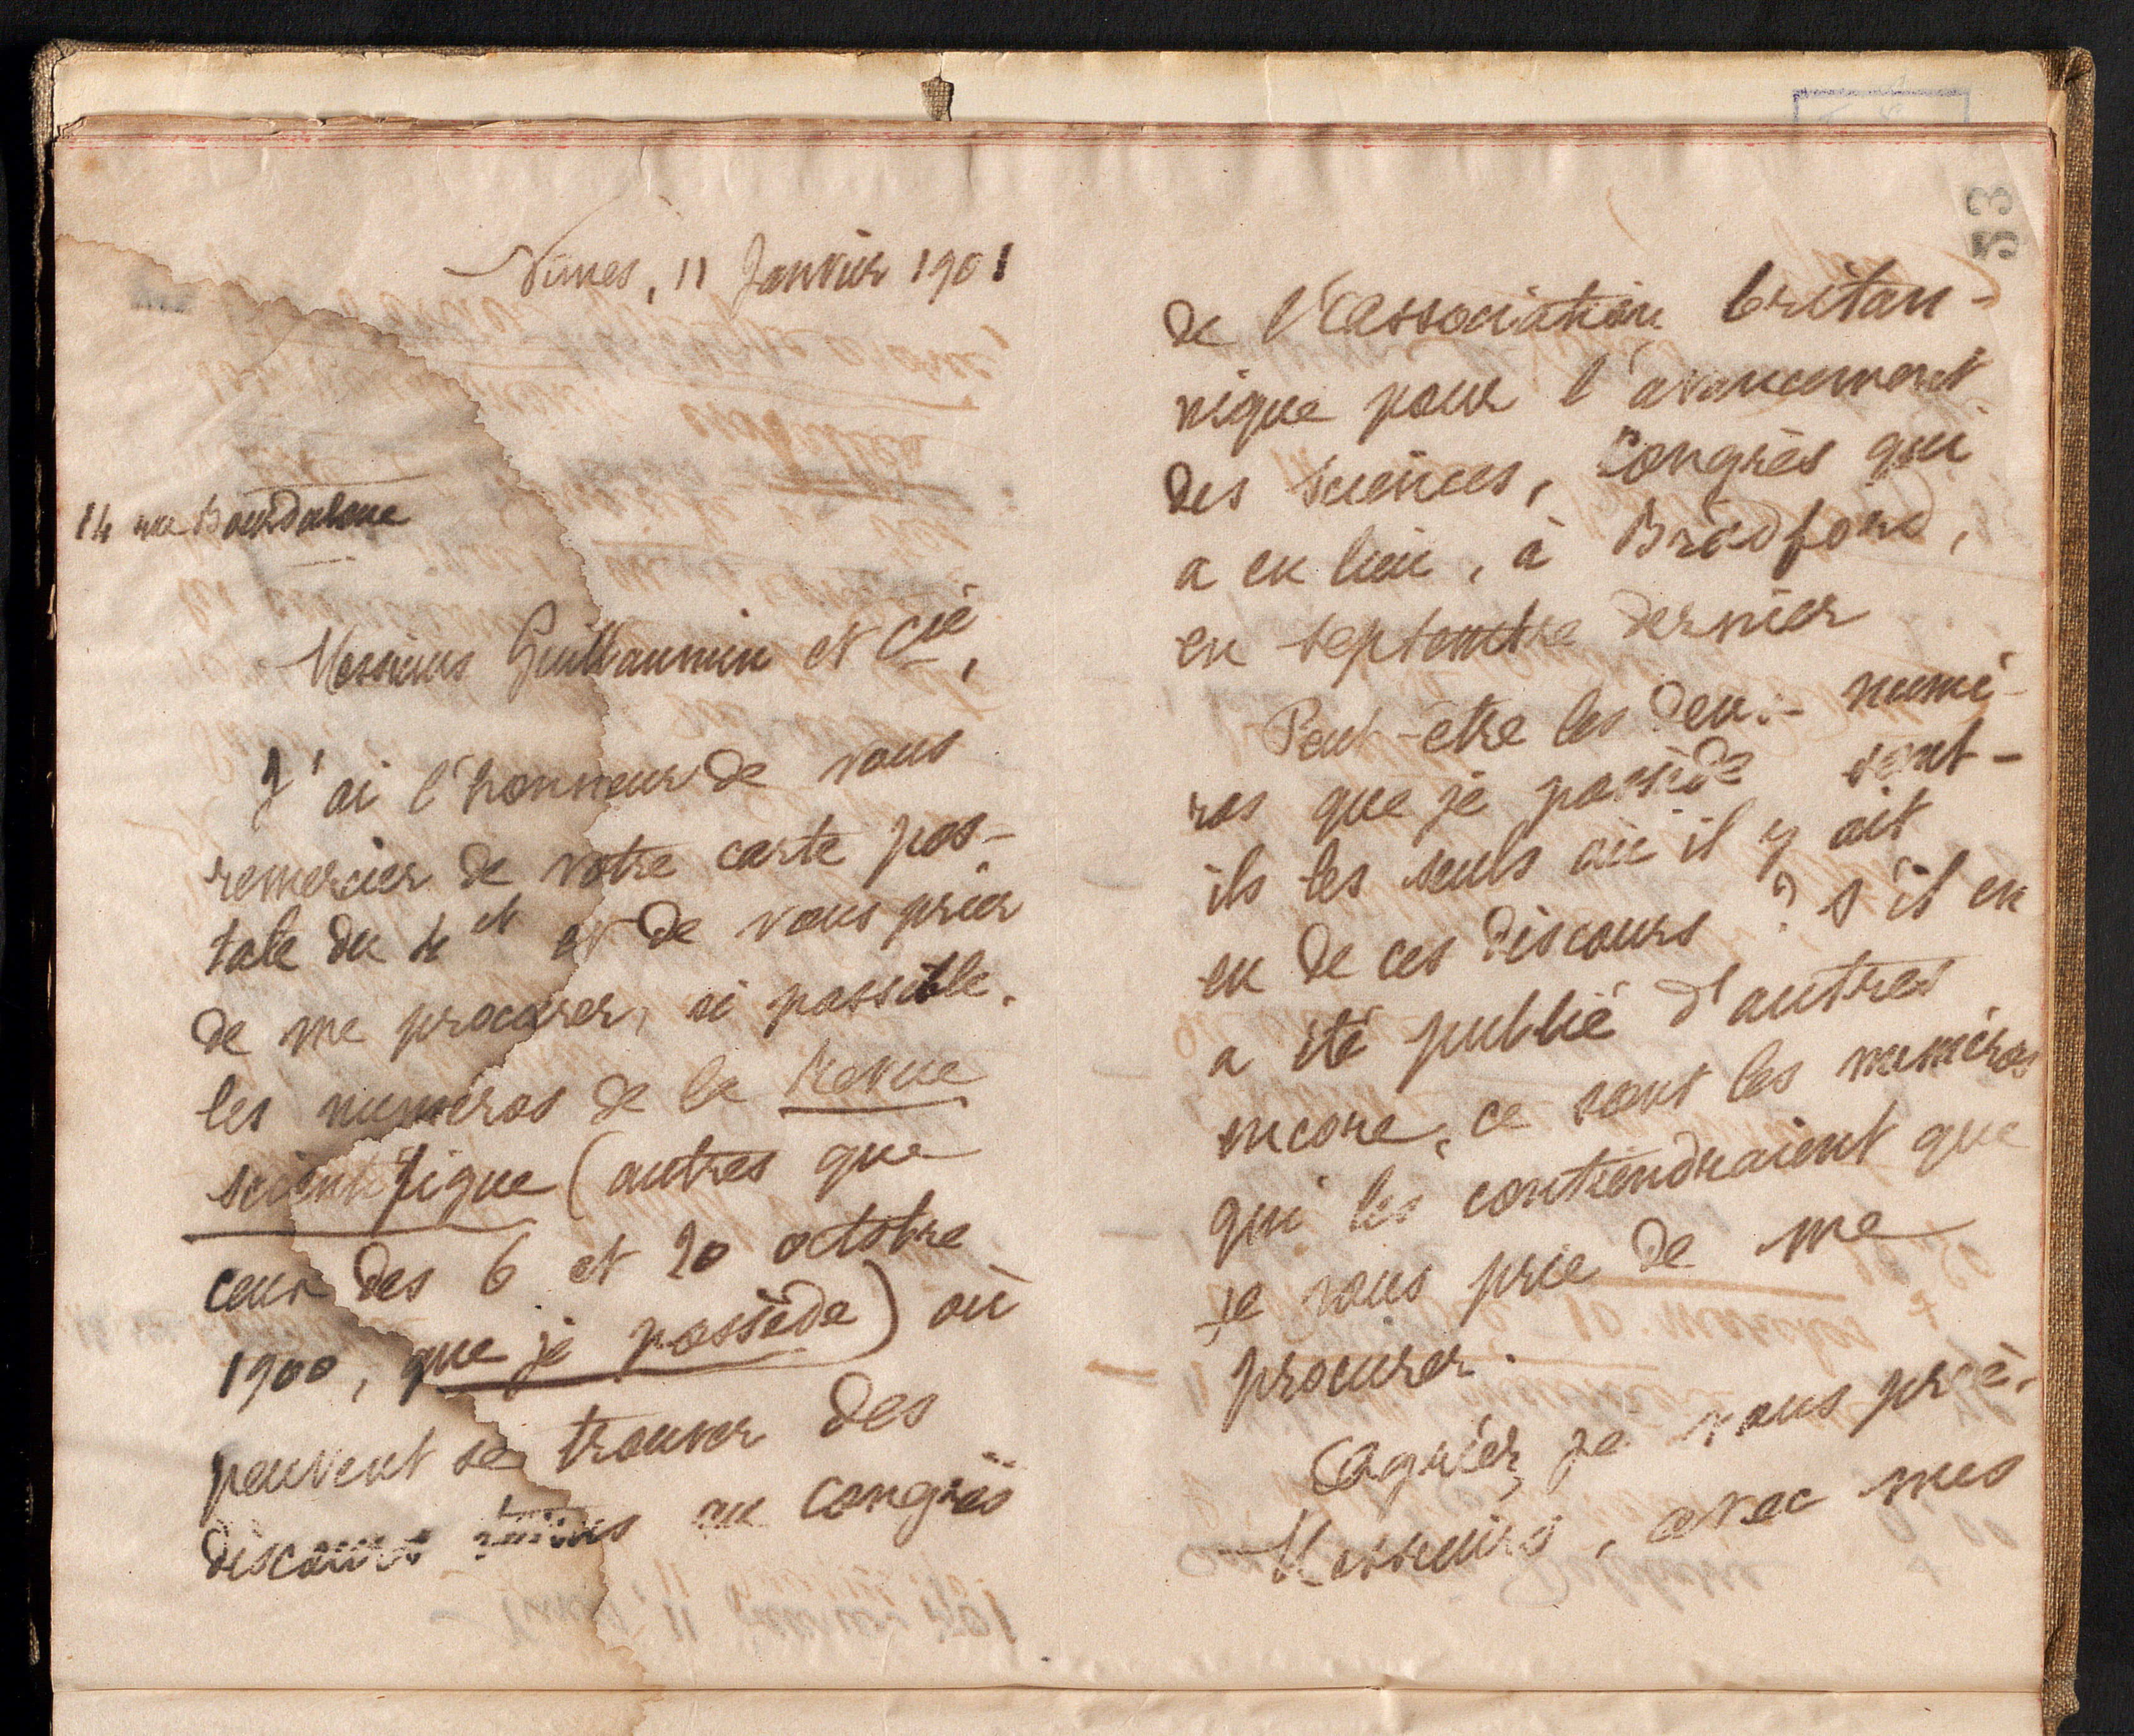 53
Nimes, 11 Janvier 1901
14 rue Bourdaloue
Messieurs Guillaumin et Cie,
J'ai l'honneur de vous
remercier de votre carte pos-
tale du 4 et et de vous prier
de me procurer, si possible,
les numéros de la Revue
scientifique (autres que
ceux des 6 et 20 octobre
1900, que je possède) où
peuvent se trouver des
discours au congrès
de l'Association britan-
nique pour l'avancement
des sciences, Congrès qui
a eu lieu, à Bradford,
en septembre dernier
Peut-être les deux numé-
ros que je possède sont-
ils les seuls où il y ait
eu de ces discours ? s'il en
a été publié d'autres
encore, ce sont les numéros
qui les contiendraient que
je vous prie de me
procurer.
Agréez, je vous prie,
Messieurs, avec mes